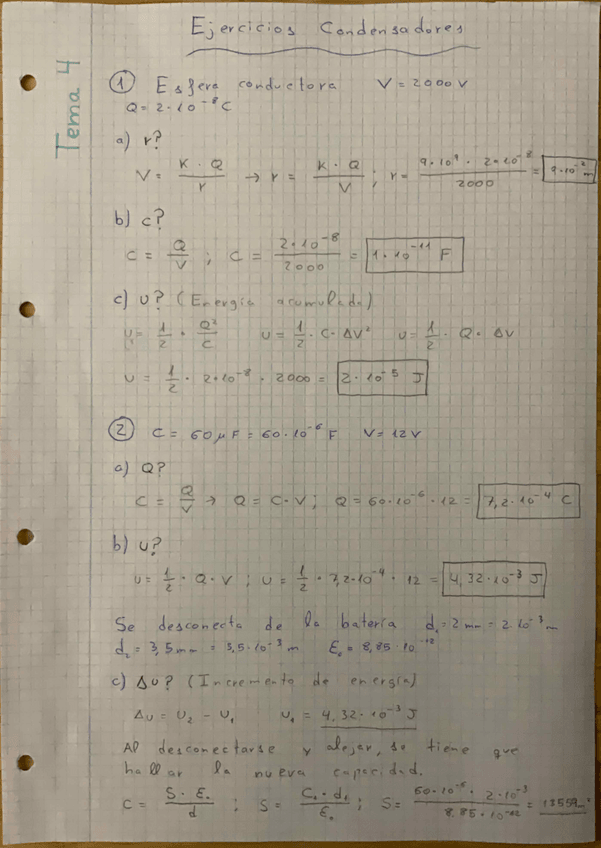 Tema 4
Ejercicios Condensadores
① Esfera conductora V = 2000 V
Q = 2·10⁻⁸ C
a) r?
V = K · Q / r → r = K · Q / V ; r = 9·10⁹ · 2·10⁻⁸ / 2000 = 9·10⁻² m
b) c?
C = Q / V ; C = 2·10⁻⁸ / 2000 = 1·10⁻¹¹ F
c) U? (Energía acumulada)
U = 1/2 · Q²/C U = 1/2 · C · ΔV² U = 1/2 · Q · ΔV
U = 1/2 · 2·10⁻⁸ · 2000 = 2·10⁻⁵ J
② C = 60 μF = 60·10⁻⁶ F V = 12 V
a) Q?
C = Q / V → Q = C·V ; Q = 60·10⁻⁶ · 12 = 7,2·10⁻⁴ C
b) U?
U = 1/2 · Q · V ; U = 1/2 · 7,2·10⁻⁴ · 12 = 4,32·10⁻³ J
Se desconecta de la batería d₁ = 2 mm = 2·10⁻³ m
d₂ = 3,5 mm = 3,5·10⁻³ m E₀ = 8,85·10⁻¹²
c) ΔU? (Incremento de energía)
ΔU = U₂ - U₁ U₁ = 4,32·10⁻³ J
Al desconectarse y alejar, se tiene que
hallar la nueva capacidad.
C = S · E₀ / d ; S = C₁ · d₁ / E₀ ; S = 60·10⁻⁶ · 2·10⁻³ / 8,85·10⁻¹² = 13559 m²